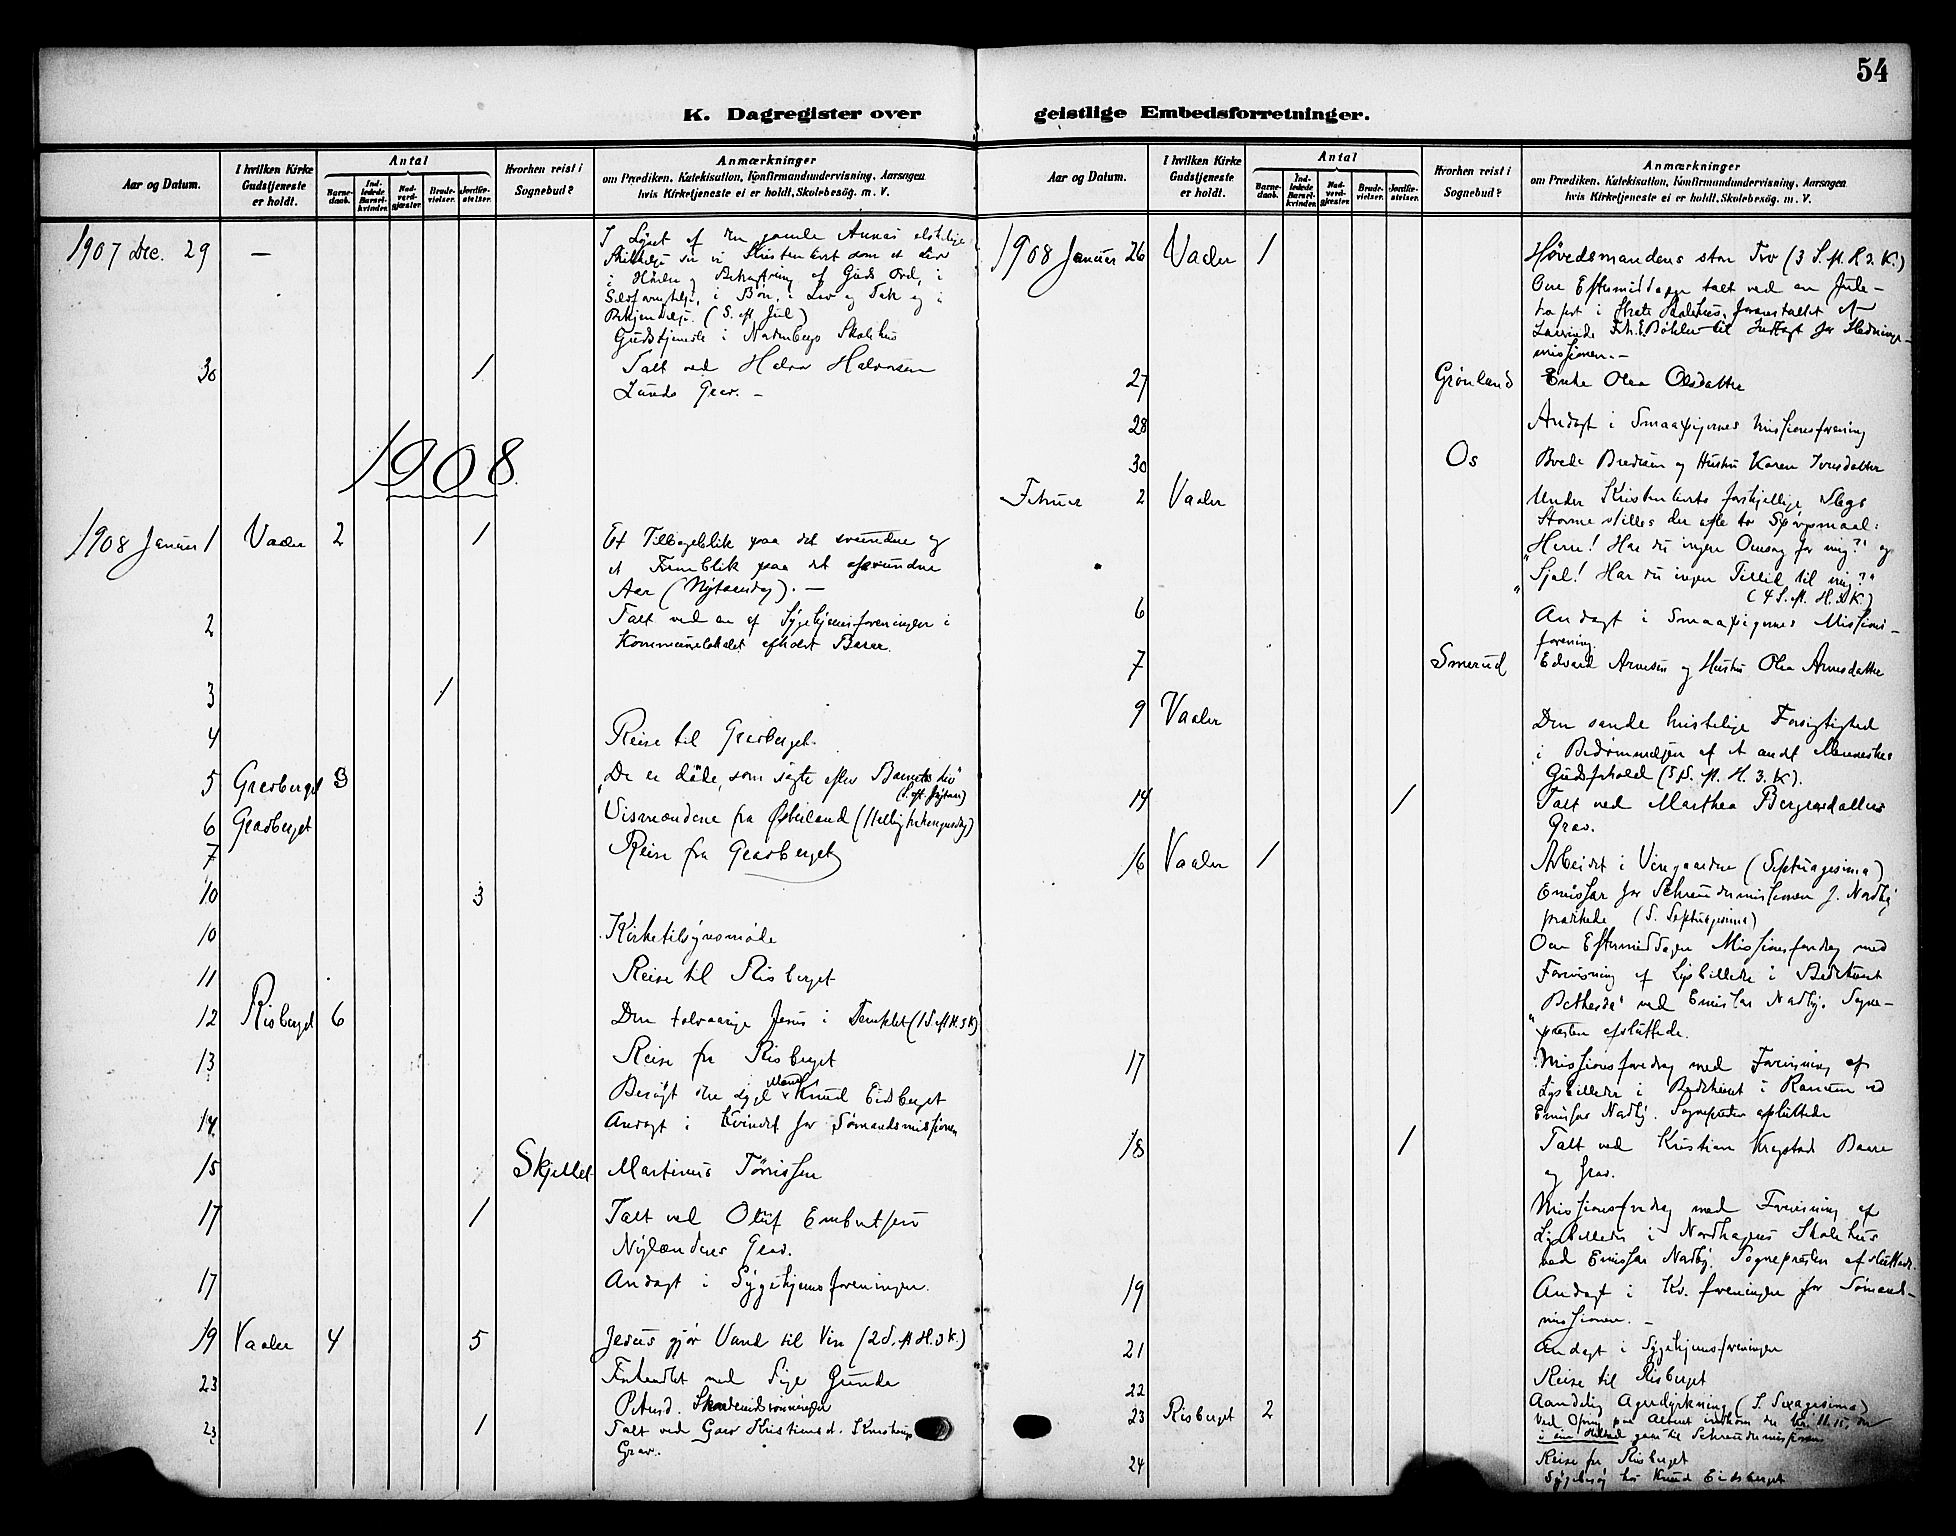 54
K. Dagregister over geistlige Embedsforretninger.
Aar og Datum.
I hvilken Kirke Gudstjeneste er holdt.
Antal
Barnedaab.
Indledede Barselkvinder.
Nadverdgjæster.
Brudevielser.
Jordfæstelser.
Hvorhen reist i Sognebud?
Anmærkninger
om Prædiken, Katekisation, Konfirmandundervisning, Aarsagen
hvis Kirketjeneste ei er holdt, Skolebesøg, m. V.
1907 Dec. 29 —
I Lyset af den gamle Annas
i Bøn, i Lov og Tak og i
Bekjendelse. (S. eft. Jul)
Gudstjeneste i Skolehus
30 1 Talt ved Halvor Halvorsen
Lunds Grav. —
1908
1908 Januar 1 Vaaler 2 1 Et Tilbageblik paa det svundne og
et Fremblik paa det oprundne
Aar (Nytaarsdag). —
2 Talt ved en af Sygehjemsforeningen i
Kommunelokalet afholdt Basar.
3 1
4 Reise til Gravberget.
5 Gravberget 3 "De er døde, som søgte efter Barnets Liv"
(S. eft. Nytaar)
6 Gravberget Vismændene fra Østerland (Hellig trekongersdag)
7 Reise fra Gravberget
10 3
10 Kirketilsynsmøde
11 Reise til Risberget
12 Risberget 6 Den tolvaarige Jesus i Templet (1 S. eft H. 3 K)
13 Reise fra Risberget
Besøgt den syge Mand Knud Eidsberget
14 Andagt i Kvindef. for Sømandsmissionen
15 Skjellet Martinus Tørrissen
17 1 Talt ved Oluf Embretsen
Nylændens Grav.
17 Andagt i Sygehjemsforeningen.
19 Vaaler 4 5 Jesus gjør Vand til Vin (2 S. eft H. 3 K.)
23 ved Sigr Gunda
23 1 Talt ved
Grav.
Aar og Datum.
I hvilken Kirke Gudstjeneste er holdt.
Antal
Barnedaab.
Indledede Barselkvinder.
Nadverdgjæster.
Brudevielser.
Jordfæstelser.
Hvorhen reist i Sognebud?
Anmærkninger
om Prædiken, Katekisation, Konfirmandundervisning, Aarsagen
hvis Kirketjeneste ei er holdt, Skolebesøg, m. V.
1908 Januar 26 Vaaler 1 Høvedsmandens stor Tro (3 S. eft. H. 3. K.)
Om Eftermiddagen talt ved en Jule-
træfest i Skolehus, foranstaltet af
til Indtægt for Hedninge-
missionen. —
27 Grønland Enke Olea Olsdatter
28 Andagt i Smaapigernes Missionsforening
30 Os Brede Bredesen og Hustru Karen Iversdatter
Februar 2 Vaaler Under Kristenlivets forskjellige Slags
Storme stilles der ofte to Spørgsmaal:
"Herre! Har du ingen Omsorg for mig?" og
"Sjæl! Har du ingen Tillid til mig?"
(4 S. eft. H. 3 K.)
6 Andagt i Smaapigernes Missions-
forening.
7 Smerud Edvard Arnesen og Hustru Olea Arnesdatter
9 Vaaler Den sande kristelige Forsigtighed
i Bedømmelsen af et andet Menneskes
Gudsforhold (5 S. eft. H. 3. K).
14 1 Talt ved Marthea Bergersdatters
Grav.
16 Vaaler 1 Arbeidet i Vingaarden (Septuagesima)
Emissær for Schreudermissionen J. Nadby
prædikede (S. Septuagesima)
Om Eftermiddagen Missionsforedrag med
Forevisning af Lysbilleder i Bedehuset
"Bethesda" ved Emissær Nadby. Sogne-
præsten afsluttede.
17 Missionsforedrag med Forevisning af
Lysbilleder i Bedehuset i Ranum ved
Emissær Nadby. Sognepræsten afsluttede
18 1 Talt ved Kristian Baare
og Grav.
Missionsforedrag med Forevisning af
Lysbilleder i Nordhagens Skolehus
ved Emissær Nadby. Sognepræsten afsluttede.
19 Andagt i Kv. foreningen for Sømands-
missionen. —
21 Andagt i Sygehjemsforeningen
22 Reise til Risberget
23 Risberget 2 Aandelig Agerdyrkning (S. Sexagesima)
Ved Ofring paa Alteret indkom der Kr. 11.15, der
gaar til Schreudermissionen
24 Reise fra Risberget
Sygebesøg hos Knud Eidsberget